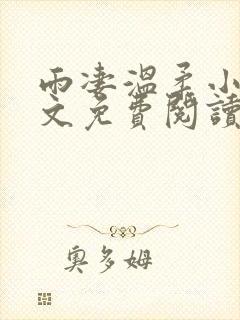 雨凄溫柔小
文免費閱讀
奧多姆